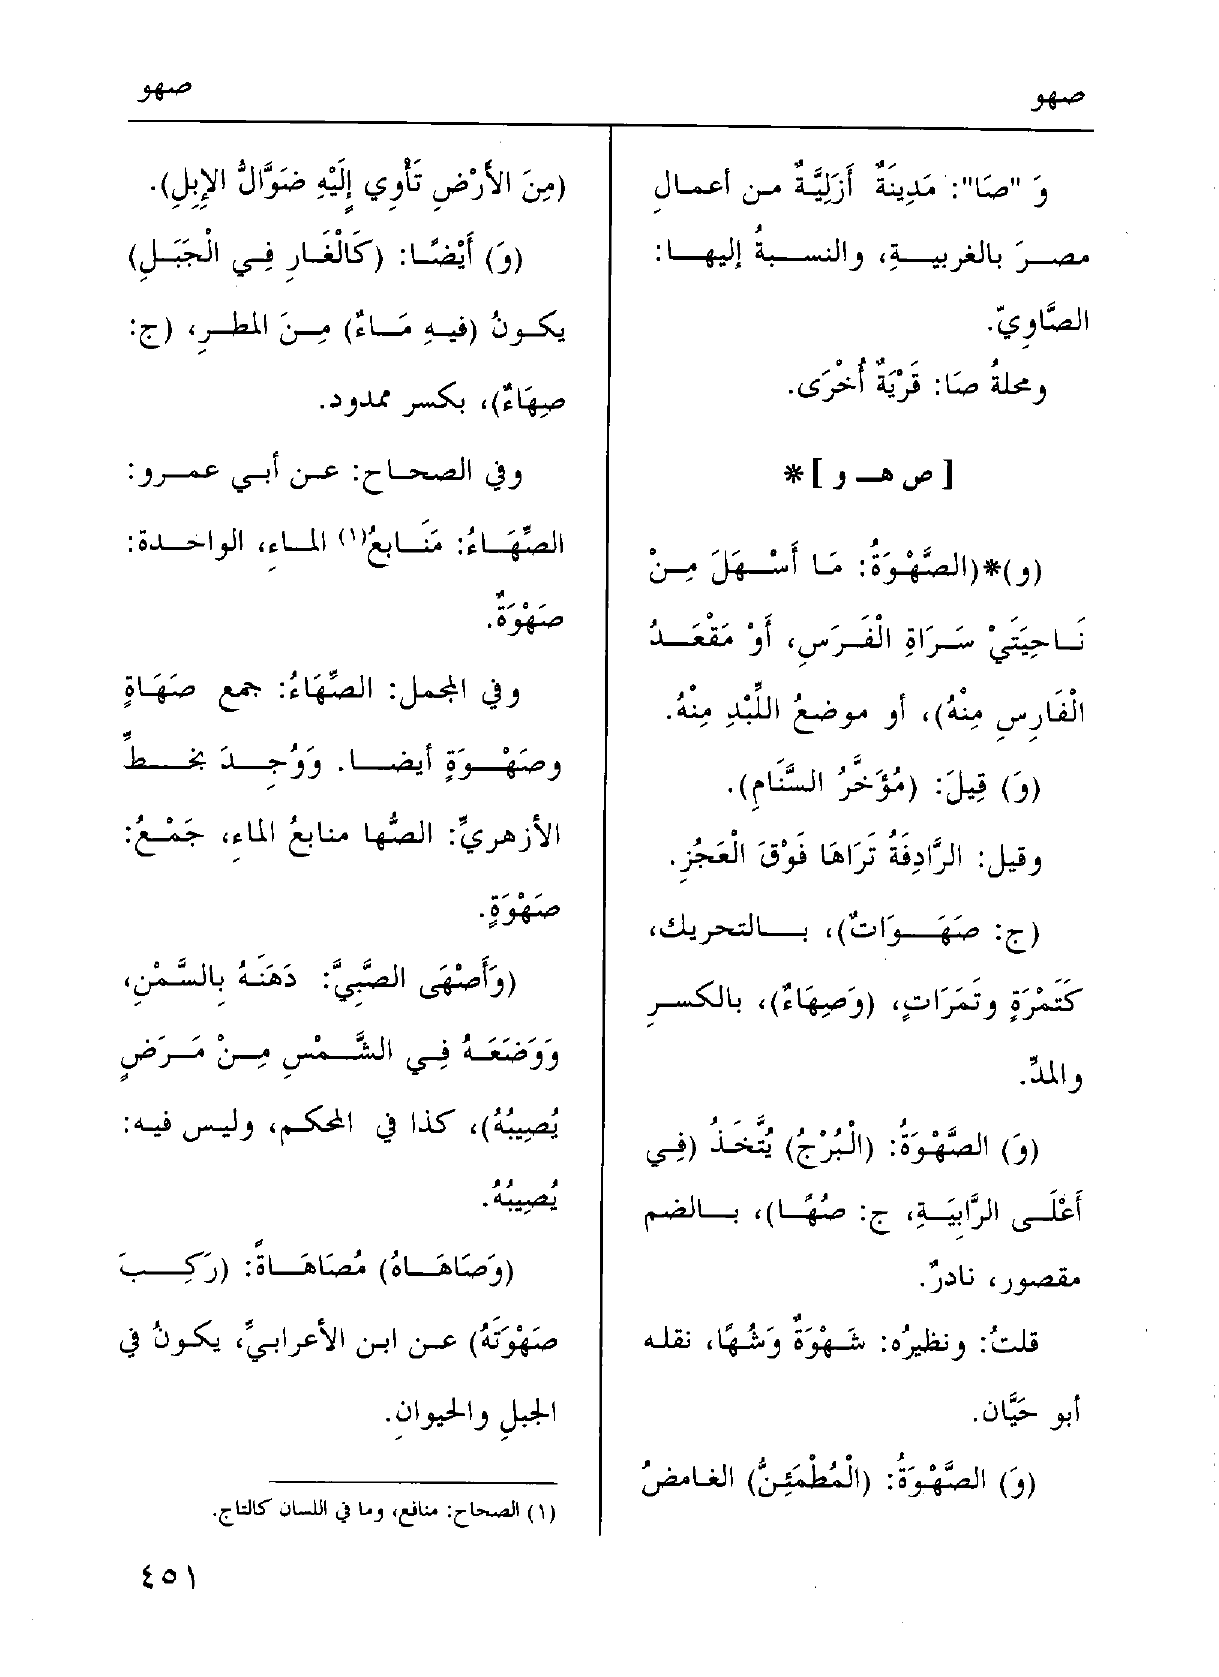 صهو
صهو
وَ "صَا": مَدِينَةٌ أَزَلِيَّةٌ من أعمالِ
مصرَ بالغربيةِ، والنسبةُ إليها:
الصَّاوِيّ.
ومحلةُ صَا: قَرْيَةٌ أُخْرَى.
[ ص هـ و ]*
(و)*(الصَّهْوَةُ: مَا أَسْهَلَ مِنْ
نَاحِيَتَيْ سَرَاةِ الْفَرَسِ، أَوْ مَقْعَدُ
الْفَارِسِ مِنْهُ)، أو موضعُ اللِّبْدِ مِنْهُ.
(وَ) قِيلَ: (مُؤَخَّرُ السَّنَامِ).
وقيل: الرَّادِفَةُ تَرَاهَا فَوْقَ الْعَجُزِ.
(ج: صَهَوَاتٌ)، بالتحريك،
كَتَمْرَةٍ وتَمَرَاتٍ، (وَصِهَاءٌ)، بالكسرِ
والمدِّ.
(وَ) الصَّهْوَةُ: (الْبُرْجُ) يُتَّخَذُ (فِي
أَعْلَى الرَّابِيَةِ، ج: صُهًا)، بالضم
مقصور، نادرٌ.
قلتُ: ونظيرُه: شَهْوَةٌ وَشُهًا، نقله
أبو حَيَّان.
(وَ) الصَّهْوَةُ: (الْمُطْمَئِنُّ) الغامضُ
(مِنَ الأَرْضِ تَأْوِي إِلَيْهِ ضَوَّالُّ الإِبِلِ).
(وَ) أَيْضًا: (كَالْغَارِ فِي الْجَبَلِ)
يكونُ (فيهِ مَاءٌ) مِنَ المطرِ، (ج:
صِهَاءٌ)، بكسر ممدود.
وفي الصحاح: عن أبي عمرو:
الصِّهَاءُ: مَنَابِعُ(١) الماءِ، الواحدة:
صَهْوَةٌ.
وفي المجمل: الصِّهَاءُ: جمع صَهَاةٍ
وصَهْوَةٍ أيضا. وَوُجِدَ بخطِّ
الأزهريِّ: الصُّها منابعُ الماءِ، جَمْعُ:
صَهْوَةٍ.
(وَأَصْهَى الصَّبِيَّ: دَهَنَهُ بِالسَّمْنِ،
وَوَضَعَهُ فِي الشَّمْسِ مِنْ مَرَضٍ
يُصِيبُهُ)، كذا في المحكم، وليس فيه:
يُصِيبُهُ.
(وَصَاهَاهُ) مُصَاهَاةً: (رَكِبَ
صَهْوَتَهُ) عن ابن الأعرابيِّ، يكونُ في
الجبلِ والحيوانِ.
(١) الصحاح: منافع، وما في اللسان كالتاج.
٤٥١